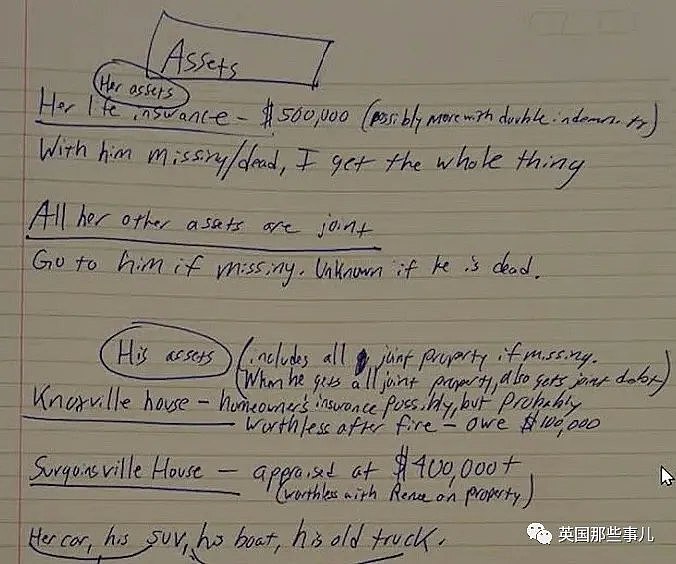 Assets
Her assets
Her life insurance - $500,000 (possibly more with double indemnity)
With him missing/dead, I get the whole thing
All her other assets are joint
Go to him if missing. Unknown if he is dead.
His assets (includes all joint property if missing.
(When he gets all joint property, also gets joint debts)
Knoxville house - homeowner's insurance possibly, but probably
worthless after fire - owe $100,000
Surgoinsville House - appraised at $400,000+
(worthless with Renee on property)
Her car, his SUV, his boat, his old truck.
英国那些事儿